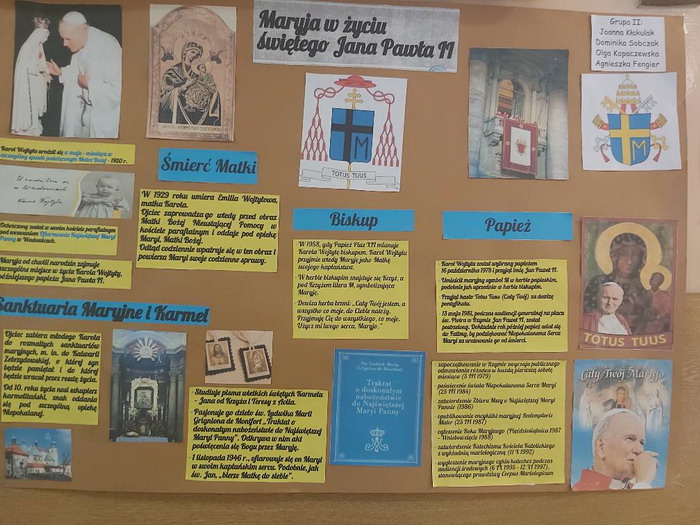 Maryja w życiu
świętego Jana Pawła II
Grupa II:
Joanna Kłakulak
Dominika Sobczak
Olga Kopaczewska
Agnieszka Fengier
Karol Wojtyła urodził się w maju - miesiącu w
szczególny sposób poświęconym Matce Bożej - 1920 r.
Karol Wojtyła
Ochrzczony został w swoim kościele parafialnym
pod wezwaniem Ofiarowania Najświętszej Maryi
Panny w Wadowicach.
Maryja od chwili narodzin zajmuje
szczególne miejsce w życiu Karola Wojtyły,
późniejszego papieża Jana Pawła II.
Śmierć Matki
W 1929 roku umiera Emilia Wojtyłowa,
matka Karola.
Ojciec zaprowadza go wtedy przed obraz
Matki Bożej Nieustającej Pomocy w
kościele parafialnym i oddaje pod opiekę
Maryi, Matki Bożej.
Odtąd codziennie wpatruje się w ten obraz i
powierza Maryi swoje codzienne sprawy.
TOTUS TUUS
Biskup
W 1958, gdy Papież Pius XII mianuje
Karola Wojtyłę biskupem, Karol Wojtyła
przyjmie wtedy Maryję jako Matkę
swojego kapłaństwa.
W herbie biskupim znajduje się Krzyż, a
pod Krzyżem litera M, symbolizująca
Maryję.
Dewiza herbu brzmi: „Cały Twój jestem, a
wszystko co moje, do Ciebie należy.
Przyjmuję Cię do wszystkiego, co moje.
Użycz mi swego serca, Maryjo.”
Papież
Karol Wojtyła został wybrany papieżem
16 października 1978 i przyjął imię Jan Paweł II.
Umieścił maryjny symbol M w herbie papieskim,
podobnie jak uprzednio w herbie biskupim.
Przyjął hasło Totus Tuus (Cały Twój) za dewizę
pontyfikatu.
13 maja 1981, podczas audiencji generalnej na placu
św. Piotra w Rzymie Jan Paweł II, został
postrzelony. Dokładnie rok później papież udał się
do Fatimy, by podziękować Niepokalanemu Sercu
Maryi za uratowanie go od śmierci.
TOTUS TUUS
Sanktuaria Maryjne i Karmel
Ojciec zabiera młodego Karola
do rozmaitych sanktuariów
maryjnych, m. in. do Kalwarii
Zebrzydowskiej, o której syn
będzie pamiętał i do której
będzie wracał przez resztę życia.
Od 10. roku życia nosi szkaplerz
karmelitański, znak oddania
się pod szczególną opiekę
Niepokalanej.
Studiuje pisma wielkich świętych Karmelu
- Jana od Krzyża i Teresy z Avila.
- Pasjonuje go dzieło św. Ludwika Marii
Grigniona de Monfort „Traktat o
doskonałym nabożeństwie do Najświętszej
Maryi Panny”. Odkrywa w nim akt
poświęcenia się Bogu przez Maryję.
1 listopada 1946 r., ofiarowuje się on Maryi
w swoim kapłańskim sercu. Podobnie, jak
św. Jan, „bierze Matkę do siebie”.
Św. Ludwik Maria
Grignion de Montfort
Traktat
o doskonałym
nabożeństwie do
Najświętszej
Maryi Panny
- zapoczątkowanie w Rzymie zwyczaju publicznego
odmawiania różańca w każdą pierwszą sobotę
miesiąca (3 III 1979)
- poświęcenie świata Niepokalanemu Sercu Maryi
(25 III 1984)
- zatwierdzenie Zbioru Mszy o Najświętszej Maryi
Pannie (1986)
- opublikowanie encykliki maryjnej Redemptoris
Mater (25 III 1987)
- ogłoszenie Roku Maryjnego (Pięćdziesiątnica 1987
- Wniebowzięcie 1988)
- zatwierdzenie Katechizmu Kościoła Katolickiego
z wykładnią mariologiczną (11 X 1992)
- wygłoszenie maryjnego cyklu katechez podczas
audiencji środowych (6 IX 1995 - 12 XI 1997),
stanowiącego prawdziwy Corpus Mariologicum
Cały Twój Maryjo